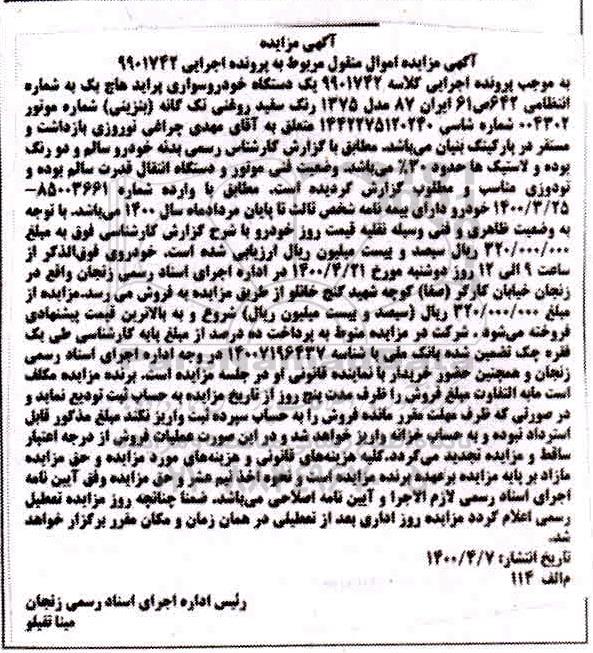 آگهی مزایده
آگهی مزایده اموال منقول مربوط به پرونده اجرایی ۹۹۰۱۷۴۲
به موجب پرونده اجرایی کلاسه ۹۹۰۱۷۴۲ یک دستگاه خودروسواری پراید هاچ بک به شماره
انتظامی ۶۴۲ص۶۱ ایران ۸۷ مدل ۱۳۷۵ رنگ سفید روغنی تک گانه (بنزینی) شماره موتور
۰۰۴۳۰۲ شماره شاسی ۱۴۴۲۲۷۵۱۲۰۲۴۰ متعلق به آقای مهدی چراغی نوروزی بازداشت و
مستقر در پارکینگ بنیان می‌باشد. مطابق با گزارش کارشناس رسمی بدنه خودرو سالم و دو رنگ
بوده و لاستیک ها حدود ۳۰٪ می‌باشد. وضعیت فنی موتور و دستگاه انتقال قدرت سالم بوده و
تودوزی مناسب و مطلوب گزارش گردیده است. مطابق با وارده شماره ۸۵۰۰۳۶۶۱–
۱۴۰۰/۳/۲۵ خودرو دارای بیمه نامه شخص ثالث تا پایان مردادماه سال ۱۴۰۰ می‌باشد. با توجه
به وضعیت ظاهری و فنی وسیله نقلیه قیمت روز خودرو با شرح گزارش کارشناسی فوق به مبلغ
۳۲۰/۰۰۰/۰۰۰ ریال سیصد و بیست میلیون ریال ارزیابی شده است. خودروی فوق‌الذکر از
ساعت ۹ الی ۱۲ روز دوشنبه مورخ ۱۴۰۰/۴/۲۱ در اداره اجرای اسناد رسمی زنجان واقع در
زنجان خیابان کارگر (صفا) کوچه شهید گنج خانلو از طریق مزایده به فروش می رسد.مزایده از
مبلغ ۳۲۰/۰۰۰/۰۰۰ ریال (سیصد و بیست میلیون ریال) شروع و به بالاترین قیمت پیشنهادی
فروخته می‌شود ، شرکت در مزایده منوط به پرداخت ده درصد از مبلغ پایه کارشناسی طی یک
فقره چک تضمین شده بانک ملی با شناسه ۱۴۰۰۷۱۹۶۴۳۷ در وجه اداره اجرای اسناد رسمی
زنجان و همچنین حضور خریدار یا نماینده قانونی او در جلسه مزایده است. برنده مزایده مکلف
است مابه التفاوت مبلغ فروش را ظرف مدت پنج روز از تاریخ مزایده به حساب ثبت تودیع نماید و
در صورتی که ظرف مهلت مقرر مانده فروش را به حساب سپرده ثبت واریز نکند مبلغ مذکور قابل
استرداد نبوده و به حساب خزانه واریز خواهد شد و در این صورت عملیات فروش از درجه اعتبار
ساقط و مزایده تجدید می‌گردد.کلیه هزینه‌های قانونی و هزینه‌های مورد مزایده و حق مزایده
مازاد بر پایه مزایده برعهده برنده مزایده است و نحوه اخذ نیم عشر و حق مزایده وفق آیین نامه
اجرای اسناد رسمی لازم الاجرا و آیین نامه اصلاحی می‌باشد. ضمنا چنانچه روز مزایده تعطیل
رسمی اعلام گردد مزایده روز اداری بعد از تعطیلی در همان زمان و مکان مقرر برگزار خواهد
شد.
تاریخ انتشار: ۱۴۰۰/۴/۷
م‌الف ۱۱۴
رئیس اداره اجرای اسناد رسمی زنجان
مینا تقیلو